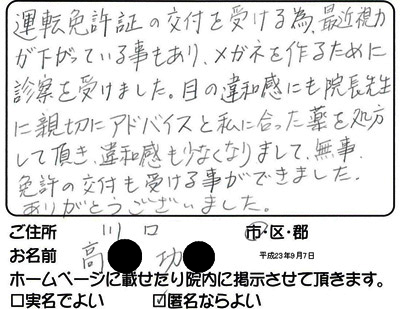 運転免許証の交付を受ける為、最近視力
が下がっている事もあり、メガネを作るために
診察を受けました。目の違和感にも院長先生
に親切にアドバイスと私に合った薬を処方
して頂き、違和感も少なくなりまして、無事、
免許の交付も受ける事ができました。
ありがとうございました。
ご住所 川口 市・区・郡
お名前 高 功 平成23年9月7日
ホームページに載せたり院内に掲示させて頂きます。
□実名でよい ☑匿名ならよい